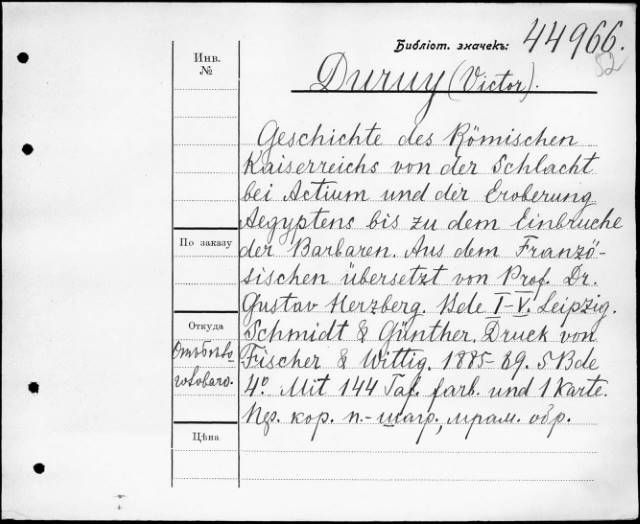 Библiот. значекъ: 44966.
52
Инв.
№
Duruy (Victor).
Geschichte des Römischen
Kaiserreichs von der Schlacht
bei Actium und der Eroberung
Aegyptens bis zu dem Einbruche
der Barbaren. Aus dem Französischen
übersetzt von Prof. Dr.
Gustav Herzberg. Bde I-V. Leipzig.
Schmidt & Günther. Druck von
Fischer & Wittig. 1885-89. 5 Bde
4º. Mit 144 Taf. farb. und 1 Karte.
Пер. кор. п.-шагр., мрам. обр.
По заказу
Откуда
Цѣна